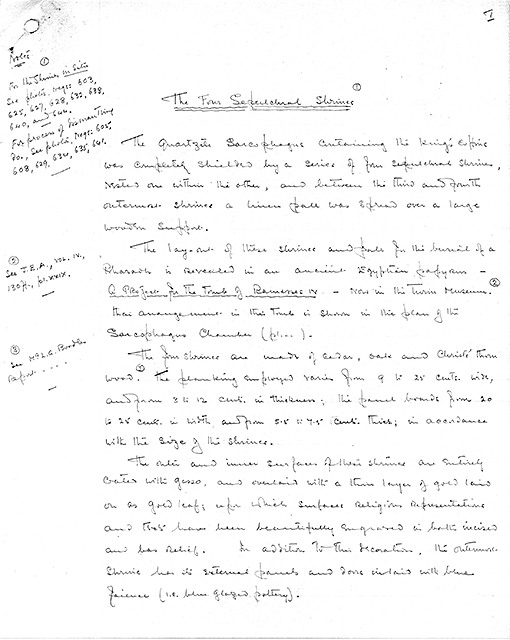 I
Notes
①
For the Shrines in Situ
See photo. negs. 603,
625, 627, 628, 632, 638,
640, and 644.
For process of Dismantling
do., see photo. negs. 605,
608, 629, 634, 635, 641.
②
See J.E.A., vol. IV.,
130ff., pl. XXIX.
③
See Mr L.A. Boodle's
report . . . .
The Four Sepulchral Shrines ①
The Quartzite Sarcophagus containing the King's Coffins
was completely shielded by a series of four sepulchral shrines,
nested one within the other, and between the third and fourth
outermost shrines a linen pall was spread over a large
wooden support.
The lay-out of these shrines and palls for the burial of a
Pharaoh is revealed in an ancient Egyptian papyrus -
A Project for the Tomb of Rameses IV - now in the Turin Museum. ②
Their arrangement in this Tomb is shown in the plan of the
Sarcophagus Chamber (pl...).
The four shrines are made of cedar, oak and Christ's thorn
wood. ③ The planking employed varies from 9 to 25 cents. wide,
and from 3 to 12 cents. in thickness; the panel boards from 20
to 25 cents. in width, and from 5.5 to 7.5 cents. thick; in accordance
with the size of the shrines.
The outer and inner surfaces of these shrines are entirely
coated with gesso, and overlaid with a thin layer of gold laid
on as gold leaf; upon which surfaces religious representations
and texts have been beautifully engraved in both incised
and bas relief. In addition to this decoration, the outermost
shrine has its external panels and doors inlaid with blue
faience (i.e. blue glazed pottery).